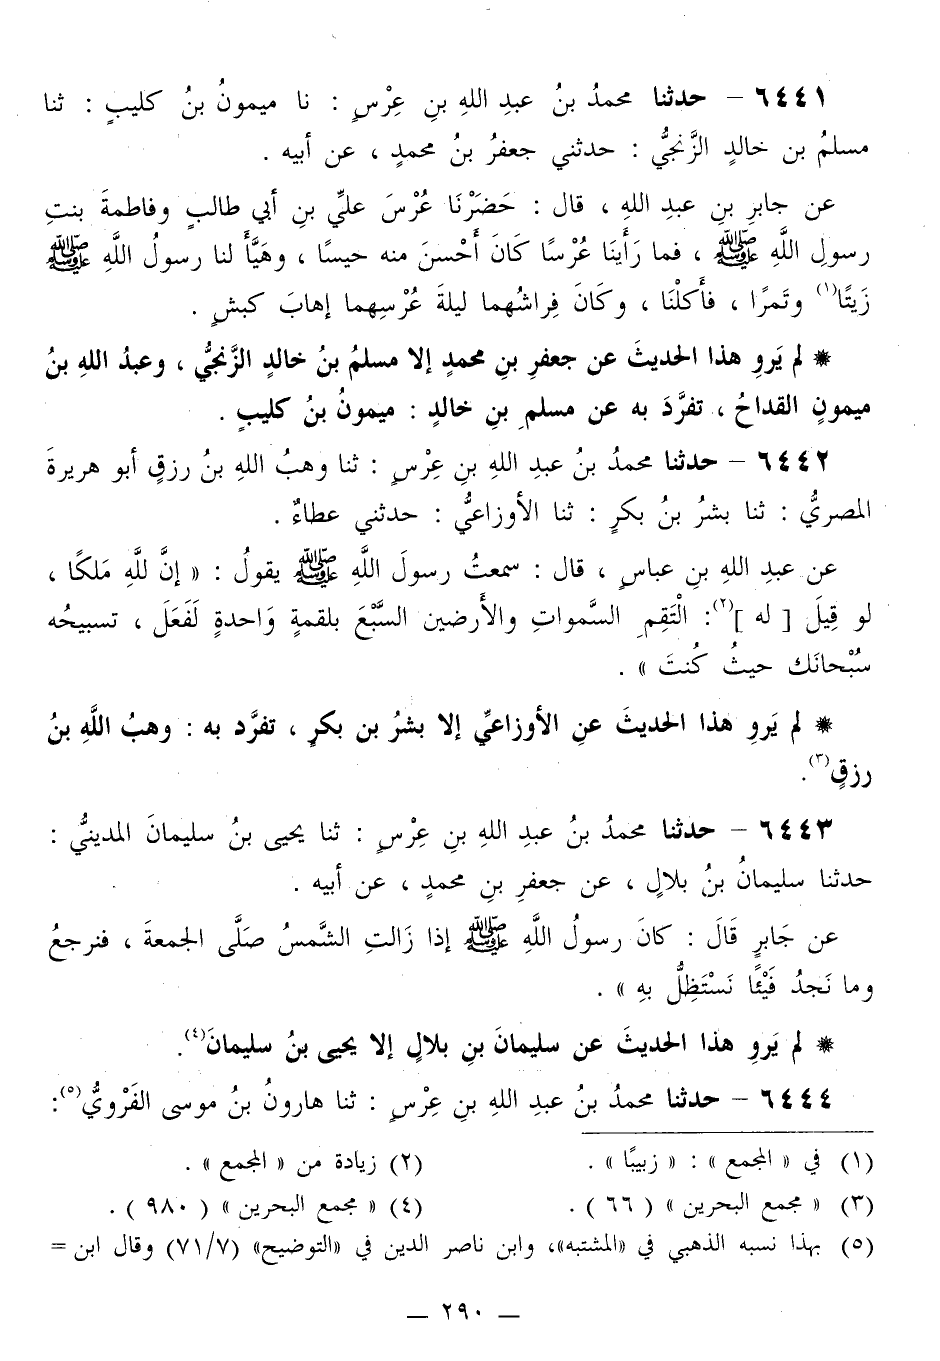 ٦٤٤١ – حدثنا محمدُ بنُ عبدِ اللهِ بنِ عِرْسٍ : نا ميمونُ بنُ كليبٍ : ثنا
مسلمُ بن خالدٍ الزَّنجيُّ : حدثني جعفرُ بنُ محمدٍ ، عن أبيه .
عن جابرِ بنِ عبدِ اللهِ ، قال : حَضَرْنَا عُرْسَ عليِّ بنِ أبي طالبٍ وفاطمةَ بنتِ
رسولِ اللَّهِ ﷺ ، فما رَأَينَا عُرْسًا كَانَ أَحْسنَ منه حيسًا ، وهَيَّأَ لنا رسولُ اللَّهِ ﷺ
زَيتًا(١) وتَمرًا ، فأَكلْنَا ، وكَانَ فِراشُهما ليلةَ عُرْسِهما إهابَ كبشٍ .
* لم يَروِ هذا الحديثَ عن جعفرِ بنِ محمدٍ إلا مسلمُ بنُ خالدٍ الزَّنجيُّ ، وعبدُ اللهِ بنُ
ميمونٍ القداحُ ، تفرَّدَ به عن مسلمِ بنِ خالدٍ : ميمونُ بنُ كليبٍ .
٦٤٤٢ – حدثنا محمدُ بنُ عبدِ اللهِ بنِ عِرْسٍ : ثنا وهبُ اللهِ بنُ رزقٍ أبو هريرةَ
المصريُّ : ثنا بشرُ بنُ بكرٍ : ثنا الأوزاعيُّ : حدثني عطاءٌ .
عن عبدِ اللهِ بنِ عباسٍ ، قال : سمعتُ رسولَ اللَّهِ ﷺ يقولُ : « إنَّ للَّهِ مَلكًا ،
لو قِيلَ [ له ](٢): الْتَقِمِ السَّمواتِ والأَرضين السَّبْعَ بلقمةٍ وَاحدةٍ لَفَعَلَ ، تسبيحُه
سُبْحانَك حيثُ كُنتَ » .
* لم يَروِ هذا الحديثَ عنِ الأوزاعيِّ إلا بشرُ بن بكرٍ ، تفرَّد به : وهبُ اللَّهِ بنُ
رزقٍ(٣).
٦٤٤٣ – حدثنا محمدُ بنُ عبدِ اللهِ بنِ عِرْسٍ : ثنا يحيى بنُ سليمانَ المدينيُّ :
حدثنا سليمانُ بنُ بلالٍ ، عن جعفرِ بنِ محمدٍ ، عن أبيه .
عن جَابرٍ قَالَ : كانَ رسولُ اللَّهِ ﷺ إذا زَالتِ الشَّمسُ صَلَّى الجمعةَ ، فنرجعُ
وما نَجدُ فَيْئًا نَسْتَظِلُّ بهِ » .
* لم يَروِ هذا الحديثَ عن سليمانَ بنِ بلالٍ إلا يحيى بنُ سليمانَ(٤).
٦٤٤٤ – حدثنا محمدُ بنُ عبدِ اللهِ بنِ عِرْسٍ : ثنا هارونُ بنُ موسى الفَرْويُّ(٥):
(١) في « المجمع » : « زبيبًا » .
(٢) زيادة من « المجمع » .
(٣) « مجمع البحرين » ( ٦٦ ) .
(٤) « مجمع البحرين » ( ٩٨٠ ) .
(٥) بهذا نسبه الذهبي في «المشتبه»، وابن ناصر الدين في «التوضيح» (٧١/٧) وقال ابن =
– ٢٩٠ –